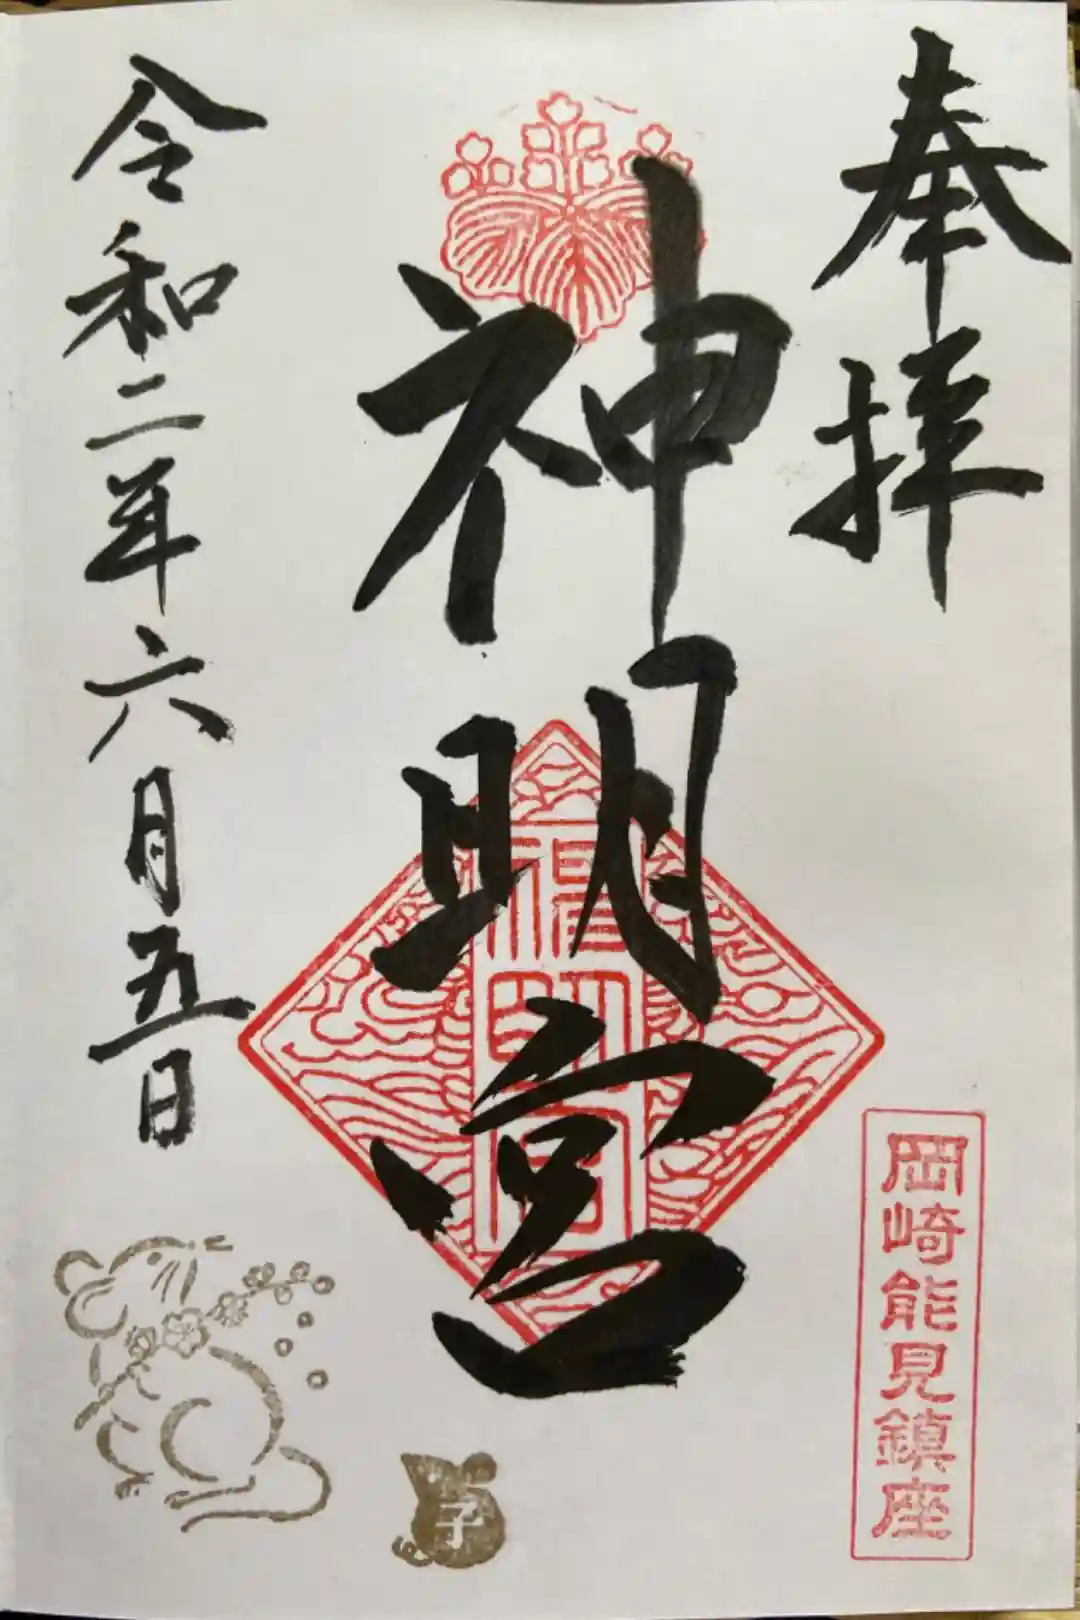 奉拝
岡崎能見鎮座
神明宮
神明宮
令和二年六月五日
子